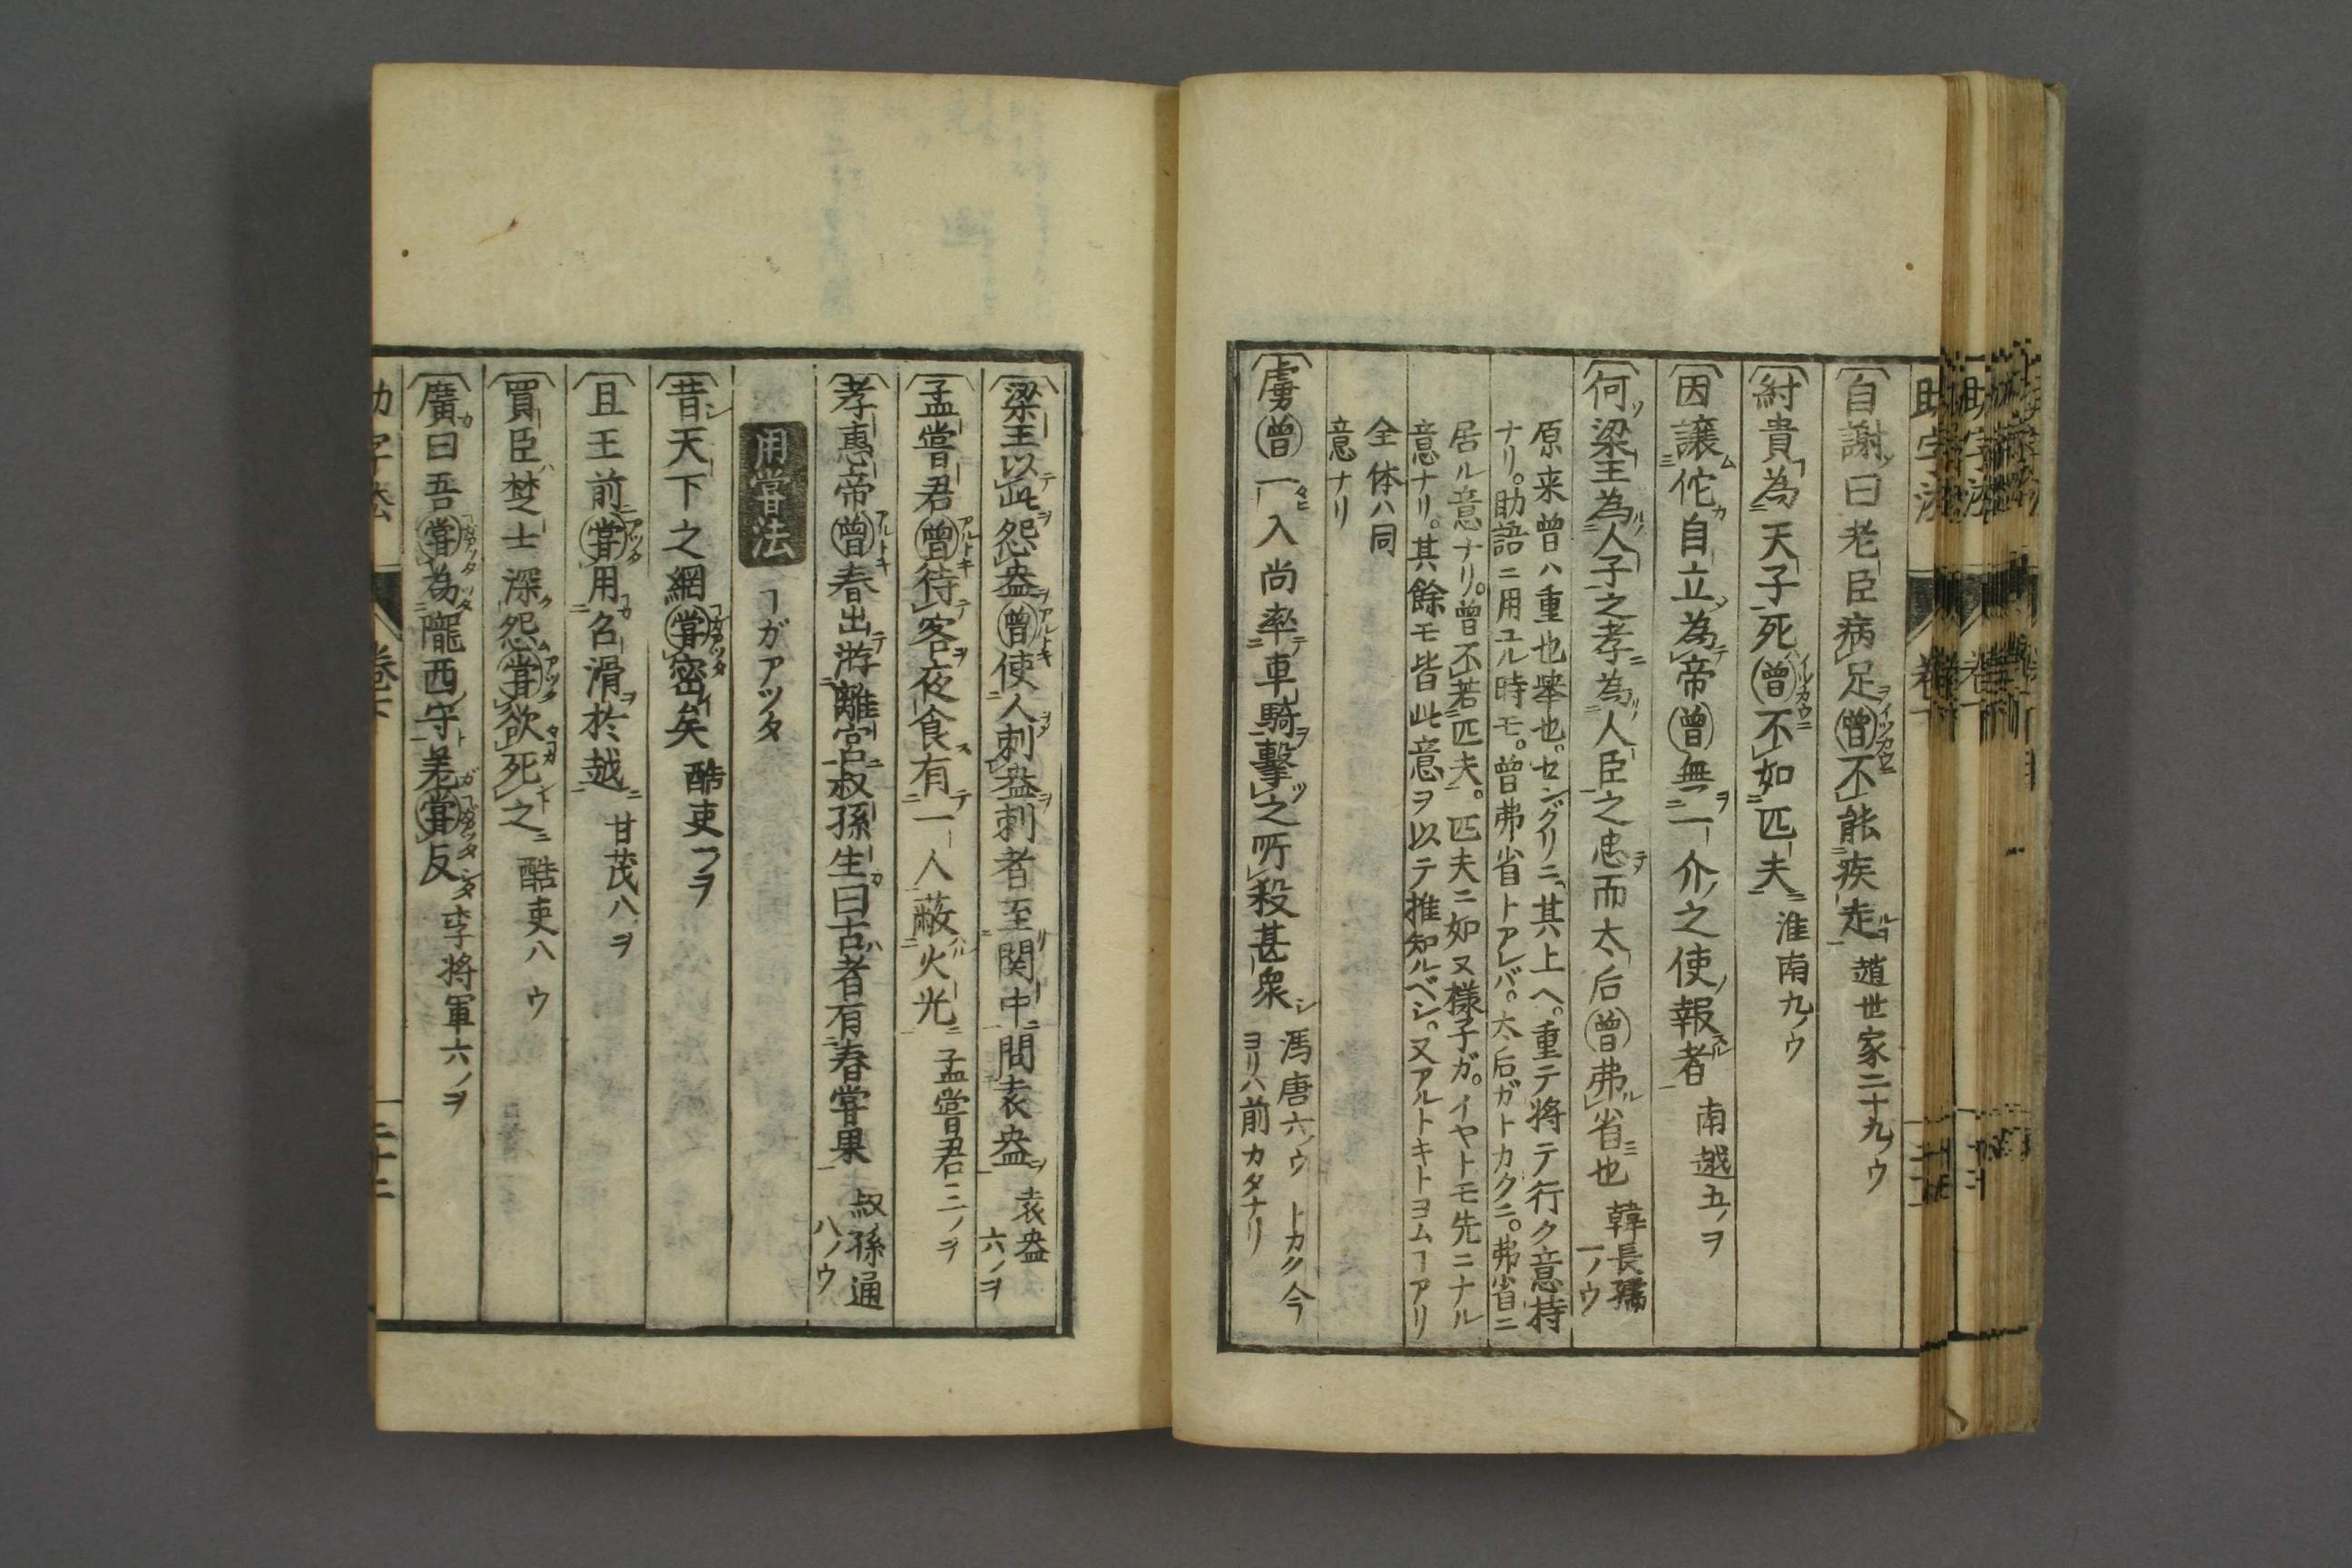 自謝曰老臣病足曾不能疾走 趙世家二十九ノウ
紂貴為天子死曾不如匹夫 淮南九ノウ
因譲佗自立為帝曾無一介之使報者 南越五ノヲ
何梁王為人子之孝為人臣之忠而太后曾弗省也 韓長孺一ノウ
原来曽ハ重也挙也。センクリニ、其上ヘ。重テ将テ行ク意持
ナリ。助語ニ用ユル時モ。曽弗省トアレバ。太后ガトカクニ。弗省ニ
居ル意ナリ。曽不若匹夫。匹夫ニ如ヌ様子ガ。イヤトモ先ニナル
意ナリ。其餘モ皆此意ヲ以テ推知ルベシ。又アルトキトヨムヿアリ
全体ハ同
意ナリ
虜曾一入尚率車騎擊之所殺甚衆 馮唐六ノウ トカク今
ヨリハ前カタナリ
梁王以此怨盎曾使人刺盎刺者至関中問袁盎 袁盎六ノヲ
孟嘗君曾待客夜食有一人蔽火光 孟嘗君三ノヲ
孝惠帝曾春出游離宮叔孫生曰古者有春嘗果 叔孫通八ノウ
用嘗法 ヿガアツタ
昔天下之網嘗密矣 酷吏一ノヲ
且王前嘗用召滑於越 甘茂八ノヲ
買臣楚士深怨嘗欲死之 酷吏八ノウ
廣曰吾嘗為隴西守羌嘗反 李将軍六ノヲ